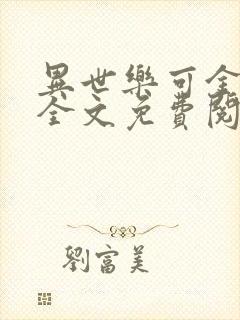 異世樂可全
全文免費閱
劉富美